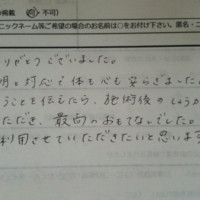 の掲載 可・不可)
ックネーム等ご希望の場合のお名前は○をお付け下さい。匿名・ニ
りがとうございました。
明と対応で体も心も安らぎました
うことを伝えたら、施術後の
ただき、最高のおもてなしでした。
利用させていただきたいと思いま